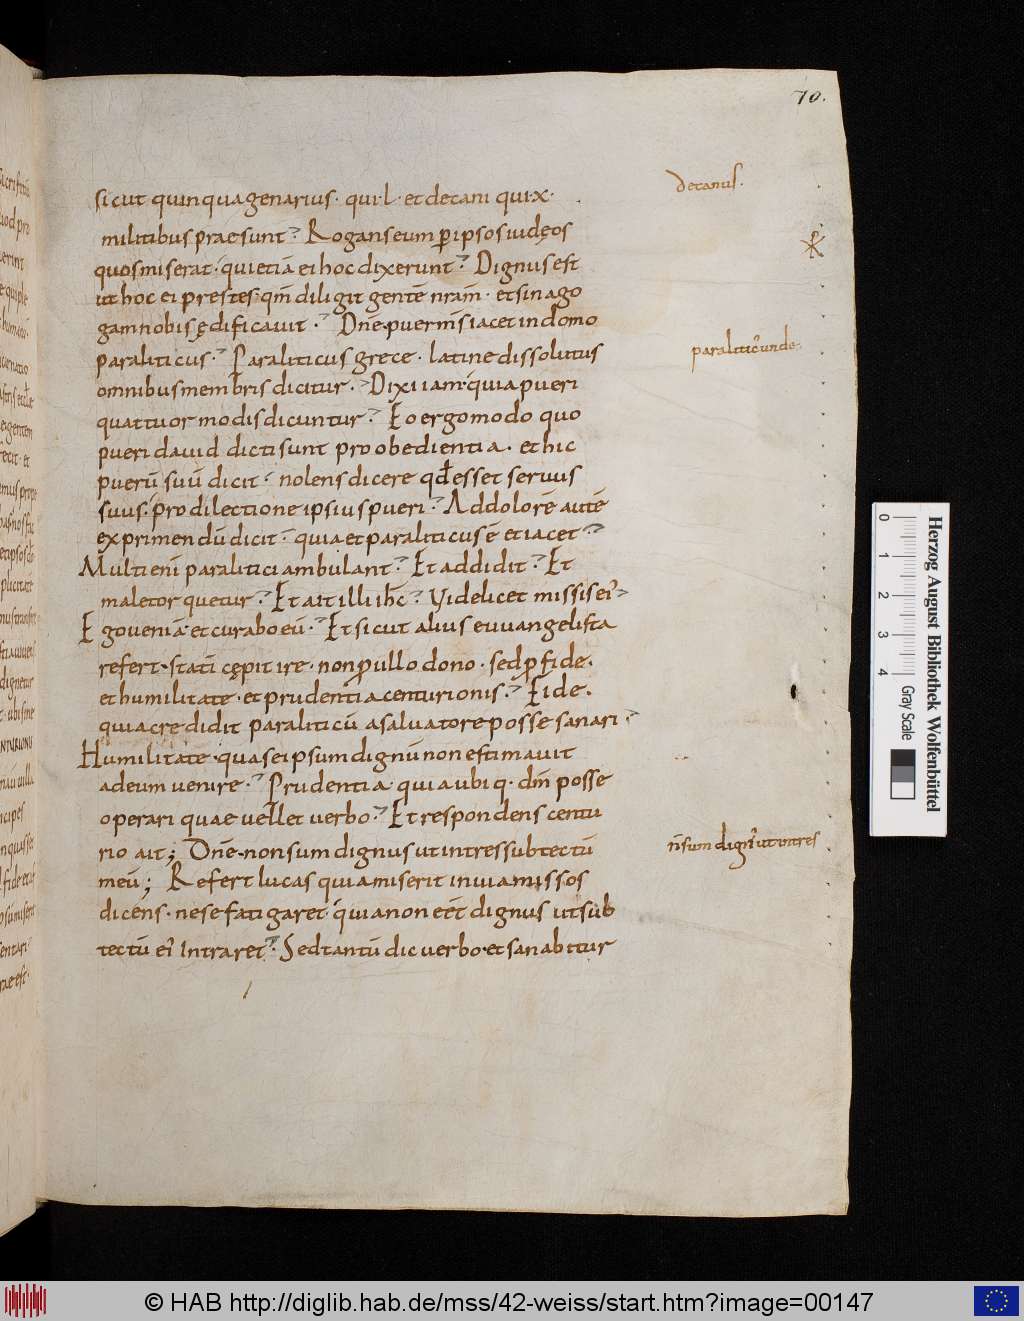 70.
decanus.
sicut quinquagenarius · qui · l · et decani qui · x ·
militibus praesunt · Rogans eum p ipsos iudęos
quos miserat · qui etiā ei hoc dixerunt · Dignus est
ut hoc ei prestes · qm̄ diligit gentē nr̄am · et sinago
gam nobis ędificauit · Dn̄e · puer m̄s iacet in domo
paraliticus · Paraliticus grece · latine dissolutus
paralitic' unde ·
omnibus membris dicitur · Dixi iam · quia pueri
quattuor modis dicuntur · Eo ergo modo quo
pueri dauid dicti sunt pro obedientia · et hic
puerū suū dicit · nolens dicere qđ esset seruus
suus · pro dilectione ipsius pueri · Ad dolorē autē
exprimendū dicit · quia et paraliticus ē et iacet ·
Multi enī paralitici ambulant · Et addidit · Et
male torquetur · Et ait illi ih̄c · Videlicet missis ei'
Ego ueniā et curabo eū · Et sicut alius euuangelista
refert · statī cępit ire · non p ullo dono · sed p fide ·
et humilitate · et prudentia centurionis · Fide ·
quia credidit paraliticū a saluatore posse sanari ·
Humilitate · qua se ipsum dignū non estimauit
ad eum uenire · Prudentia · quia ubiq · dm̄ posse
operari quae uellet uerbo · Et respondens centu
rio ait ; Dn̄e · non sum dignus ut intres sub tectū
n̄ sum dign' ut intres
meū ; Refert lucas quia miserit in uia missos
dicens · ne se fatigaret · quia non eēt dignus ut sub
tectū ei' intraret · Sed tantū dic uerbo · et sanabitur
Herzog August Bibliothek Wolfenbüttel
0 1 2 3 4
Gray Scale
© HAB http://diglib.hab.de/mss/42-weiss/start.htm?image=00147